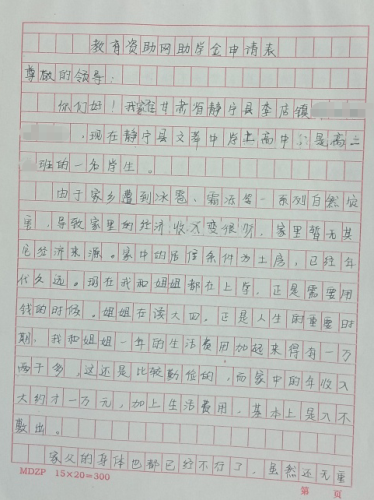 教育资助网助学金申请表
尊敬的领导:
你们好!我家在甘肃省静宁县李店镇
,现在静宁县文萃中学上高中,是高二
班的一名学生。
由于家乡遭到冰雹、霜冻等一系列自然灾
害,导致家里的经济收入变很少,家里暂无其
它经济来源。家中的居住条件为土房,已经年
代久远。现在我和姐姐都在上学,正是需要用
钱的时候。姐姐在读大四,正是人生的重要时
期,我和姐姐一年的生活费用加起来得有一万
两千多,这还是比较勤俭的,而家中的年收入
大约才一万元,加上生活费用,基本上是入不
敷出。
家父的身体也都已经不行了,虽然还无重
MDZP 15×20=300
第 页